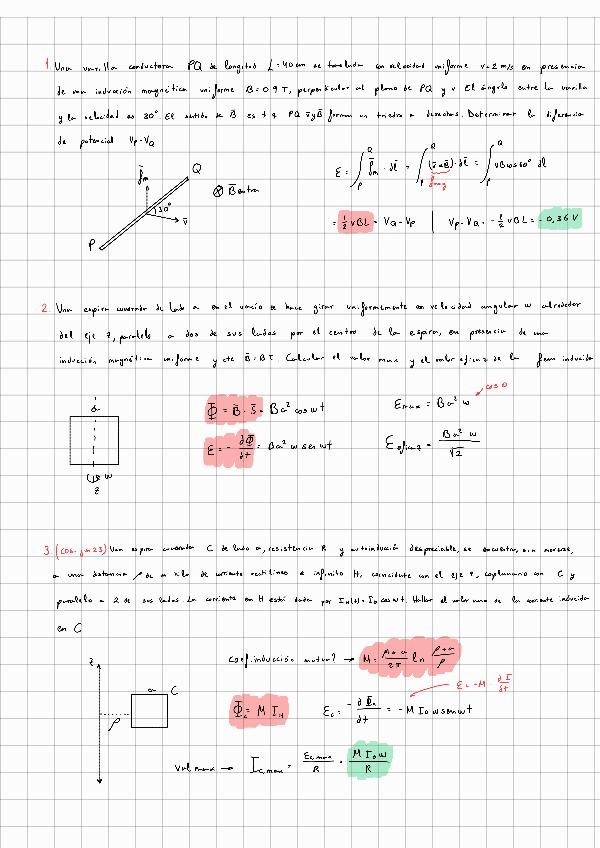 1. Una varilla conductora PQ de longitud L=40cm se traslada con velocidad uniforme v=2 m/s en presencia
de una inducción magnética uniforme B=0.9 T, perpendicular al plano de PQ y v. El ángulo entre la varilla
y la velocidad es 30°. El sentido de B̄ es t q PQ v̄ y B̄ forman un triedro a derechas. Determinar la diferencia
de potencial Vp-VQ
Q
f̄m
30°
v̄
P
⊗ B̄ entra
ε = ∫_P^Q f̄m · dl̄ = ∫_P^Q (v̄×B̄) · dl̄ = ∫_P^Q vB cos 60° dl
fmag
= 1/2 vBL = VQ-Vp | Vp-VQ = -1/2 vBL = -0,36 V
2. Una espira cuadrada de lado a en el vacío se hace girar uniformemente con velocidad angular w alrededor
del eje z, paralelo a dos de sus lados por el centro de la espira, en presencia de una
inducción magnética uniforme y cte B̄ = B T. Calcular el valor max y el valor eficaz de la fem inducida
a
w
z
Φ = B̄ · S̄ = Ba² cos wt
ε = - dΦ/dt = Ba² w sen wt
cos 0
εmax = Ba² w
εeficaz = Ba² w / √2
3. (cos. jun 23) Una espira cuadrada C de lado a, resistencia R y autoinducción despreciable, se encuentra, sin moverse,
a una distancia ρ de un hilo de corriente rectilíneo e infinito H, coincidente con el eje z, coplanario con C y
paralelo a 2 de sus lados. La corriente en H está dada por I_H(t) = I₀ cos wt. Hallar el valor max de la corriente inducida
en C
z
a
C
ρ
coef. inducción mutua? → M = μ₀ a / 2π ln (ρ+a)/ρ
εc = -M dI/dt
Φc = M I_H
εc = -dΦc/dt = -M I₀ w sen wt
Val max → Ic,max = εc,max/R = M I₀ w / R